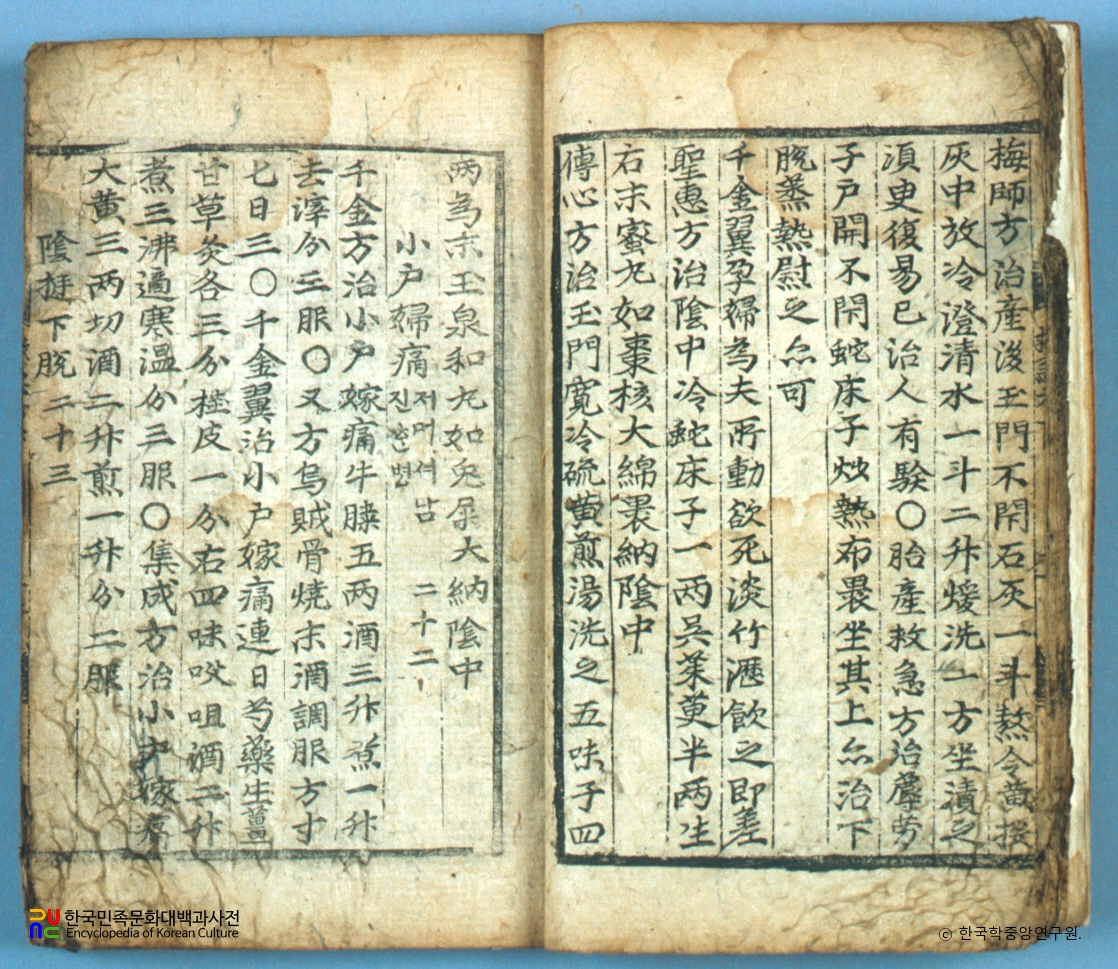 梅師方治產後玉門不閇石灰一斗熬令黄攃
灰中放冷澄清水一斗二升煖洗一方坐漬之
湏臾復易已治人有驗〇胎產救急方治蓐勞
子戶開不閇蛇床子炒熱布裹坐其上亦治下
脫蒸熱慰之亦可
千金翼孕婦為夫所動欲死淡竹瀝飲之即差
聖惠方治陰中冷蛇床子一两吳茱萸半两生
右末蜜丸如棗核大綿裹納陰中
傳心方治玉門寛冷硫黄煎湯洗之五味子四
两為末玉泉和丸如兔屎大納陰中
小戶嫁痛 져머셔 남 진 二十二
千金方治小戶嫁痛牛膝五两酒三升煮一升
去滓分三服〇又方烏賊骨燒末酒調服方寸
七日三〇千金翼治小戶嫁痛連日芍藥生薑
甘草炙各三分桂皮一分右四味㕮咀酒二升
煮三沸適寒温分三服〇集成方治小戶嫁痛
大黄三两切酒二升煎一升分二服
陰挺下脫 二十三
한국민족문화대백과사전
Encyclopedia of Korean Culture
ⓒ 한국학중앙연구원.